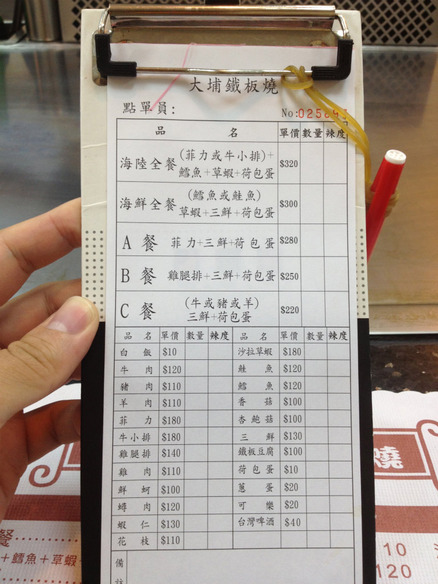 大埔鐵板燒
點單員：
No:025
品 名 單價 數量 辣度
海陸全餐 (菲力或牛小排)+ 鱈魚+草蝦+荷包蛋 $320
海鮮全餐 (鱈魚或鮭魚) 草蝦+三鮮+荷包蛋 $300
A 餐 菲力+三鮮+荷包蛋 $280
B 餐 雞腿排+三鮮+荷包蛋 $250
C 餐 (牛或豬或羊) 三鮮+荷包蛋 $220
品 名 單價 數量 辣度 品 名 單價 數量 辣度
白 飯 $10 沙拉草蝦 $180
牛 肉 $120 鮭 魚 $120
豬 肉 $110 鱈 魚 $120
羊 肉 $110 香 菇 $100
菲 力 $180 杏鮑菇 $100
牛小排 $180 三 鮮 $130
雞腿排 $140 鐵板豆腐 $100
雞 肉 $110 荷包蛋 $10
鮮 蚵 $100 蔥 蛋 $20
鱒 肉 $120 可 樂 $20
蝦 仁 $130 台灣啤酒 $40
花 枝 $110
備
註
燒
餐
+鱈魚+草蝦
10
120